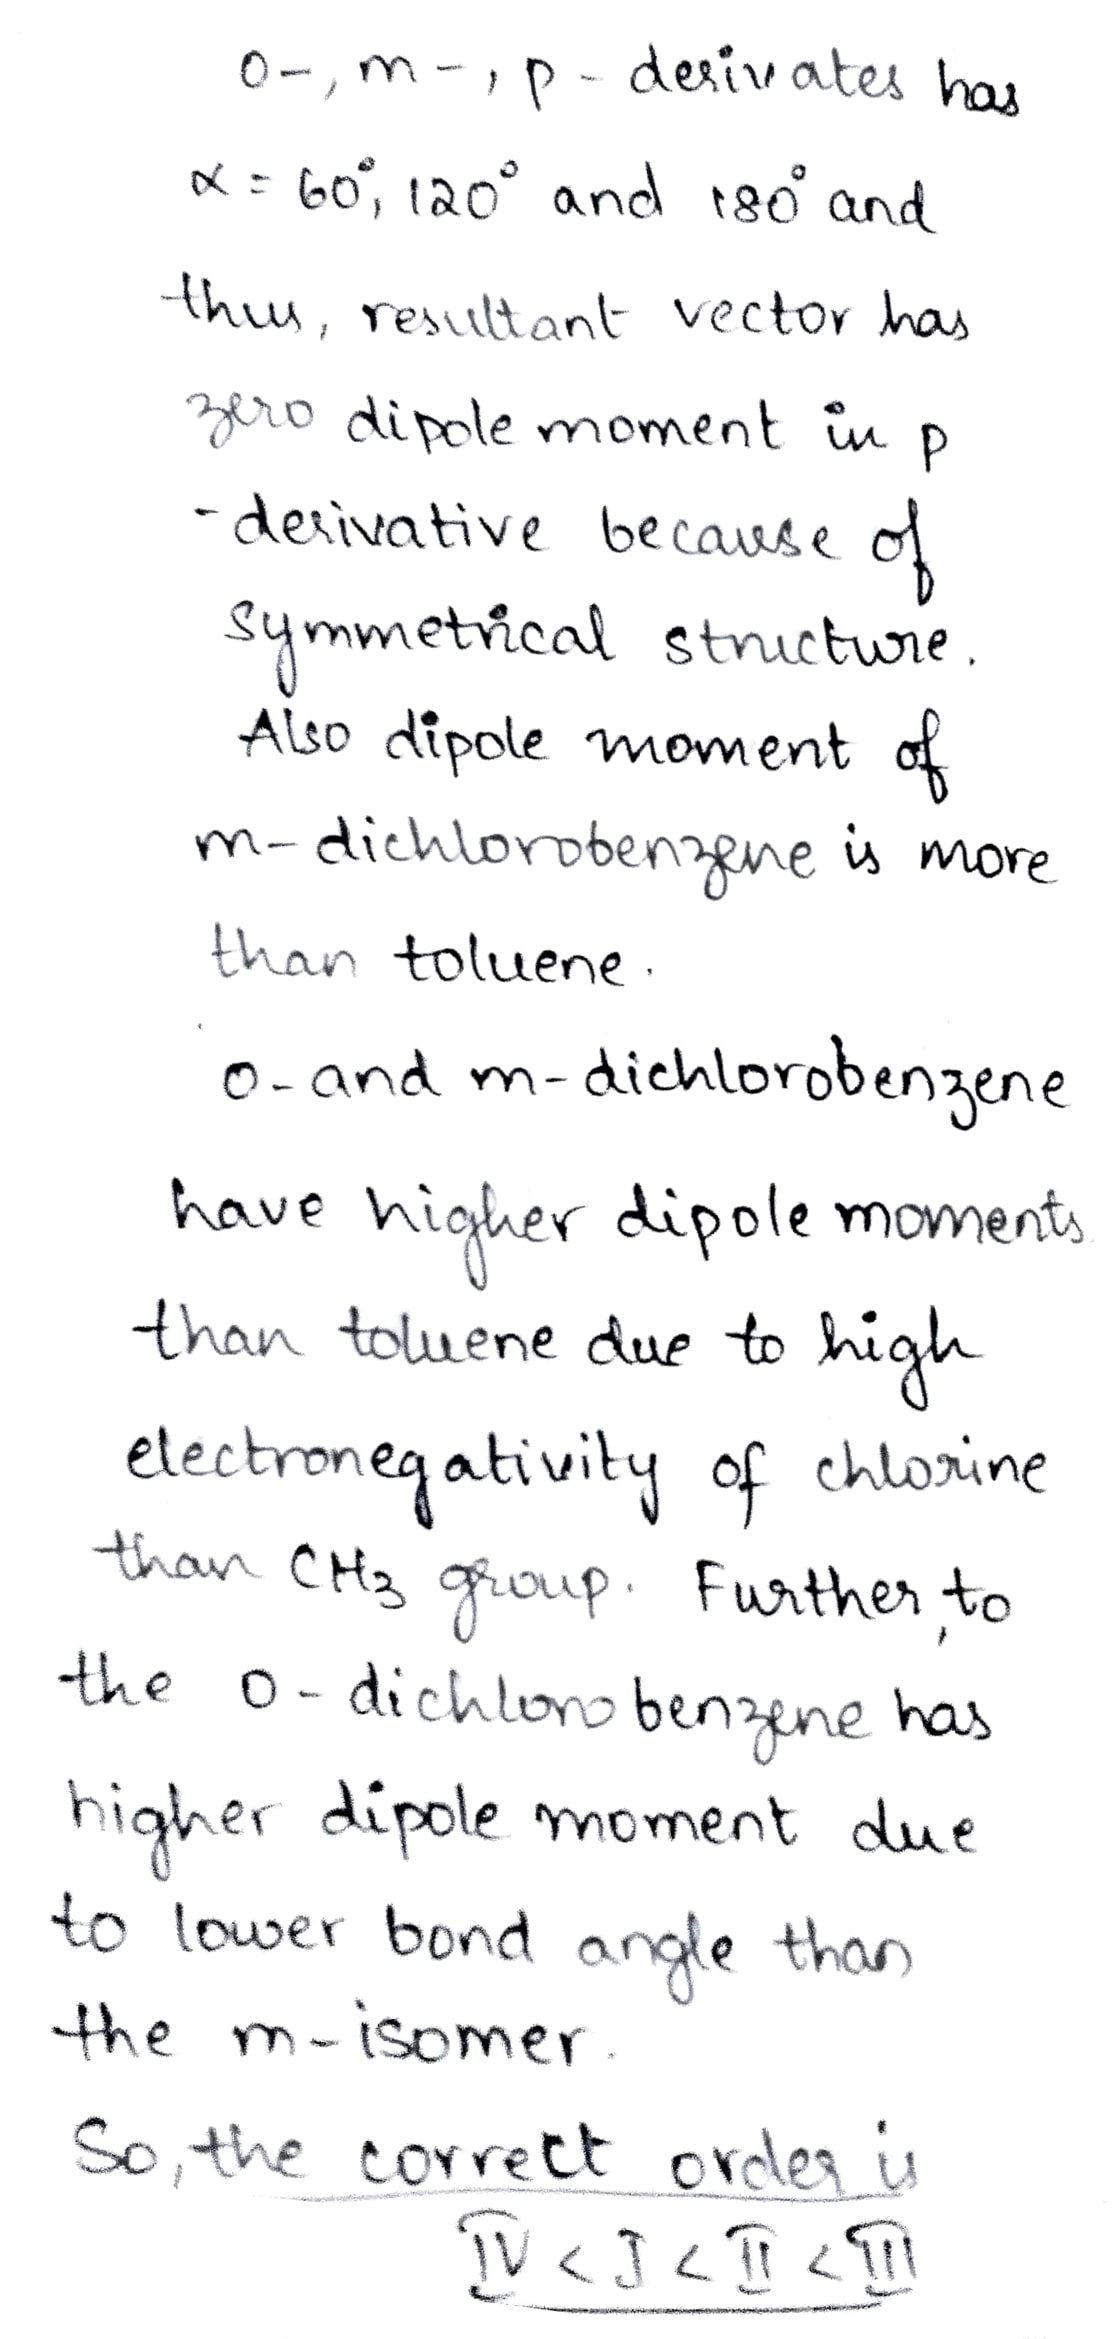 o-, m-, p- derivates has
α = 60°, 120° and 180° and
thus, resultant vector has
zero dipole moment in p
-derivative because of
symmetrical structure.
Also dipole moment of
m-dichlorobenzene is more
than toluene.
o-and m-dichlorobenzene
have higher dipole moments
than toluene due to high
electronegativity of chlorine
than CH3 group. Further, to
the o-dichlorobenzene has
higher dipole moment due
to lower bond angle than
the m-isomer.
So, the correct order is
IV < I < II < III